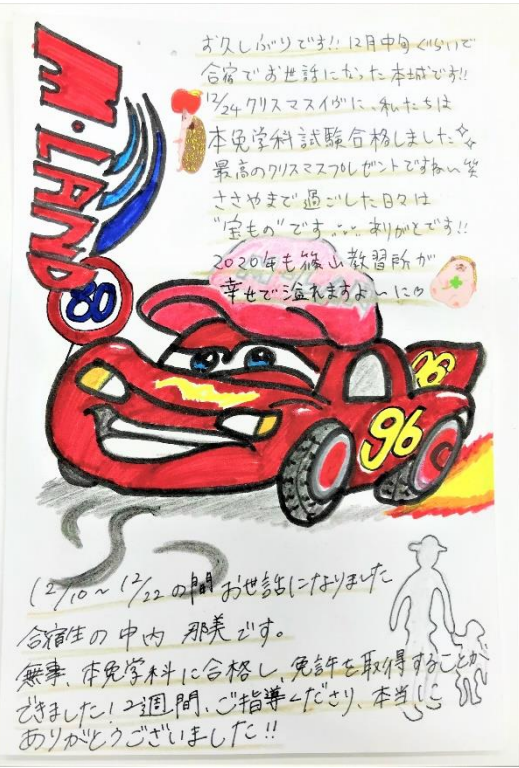 お久しぶりです!! 12月中旬ぐらいで
合宿でお世話になった本城です!!
12/24 クリスマスイヴに、私たちは
本免学科試験合格しました
最高のクリスマスプレゼントですねい笑
ささやまで過ごした日々は
"宝もの"です.... ありがとです!!
2020年も篠山教習所が
幸せで溢れますよーに
M・LAND
80
96
96
12/10～12/22の間お世話になりました
合宿生の中内 那美です。
無事、本免学科に合格し、免許を取得することが
できました！2週間、ご指導くださり、本当に
ありがとうございました!!